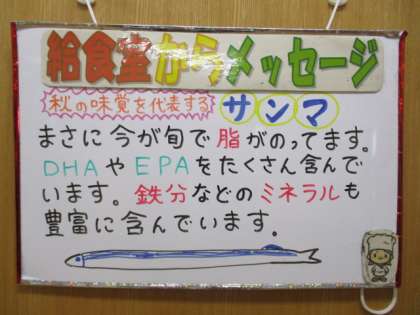 給食室からメッセージ
秋の味覚を代表する サンマ
まさに今が旬で脂がのってます。
DHAやEPAをたくさん含んで
います。鉄分などのミネラルも
豊富に含んでいます。